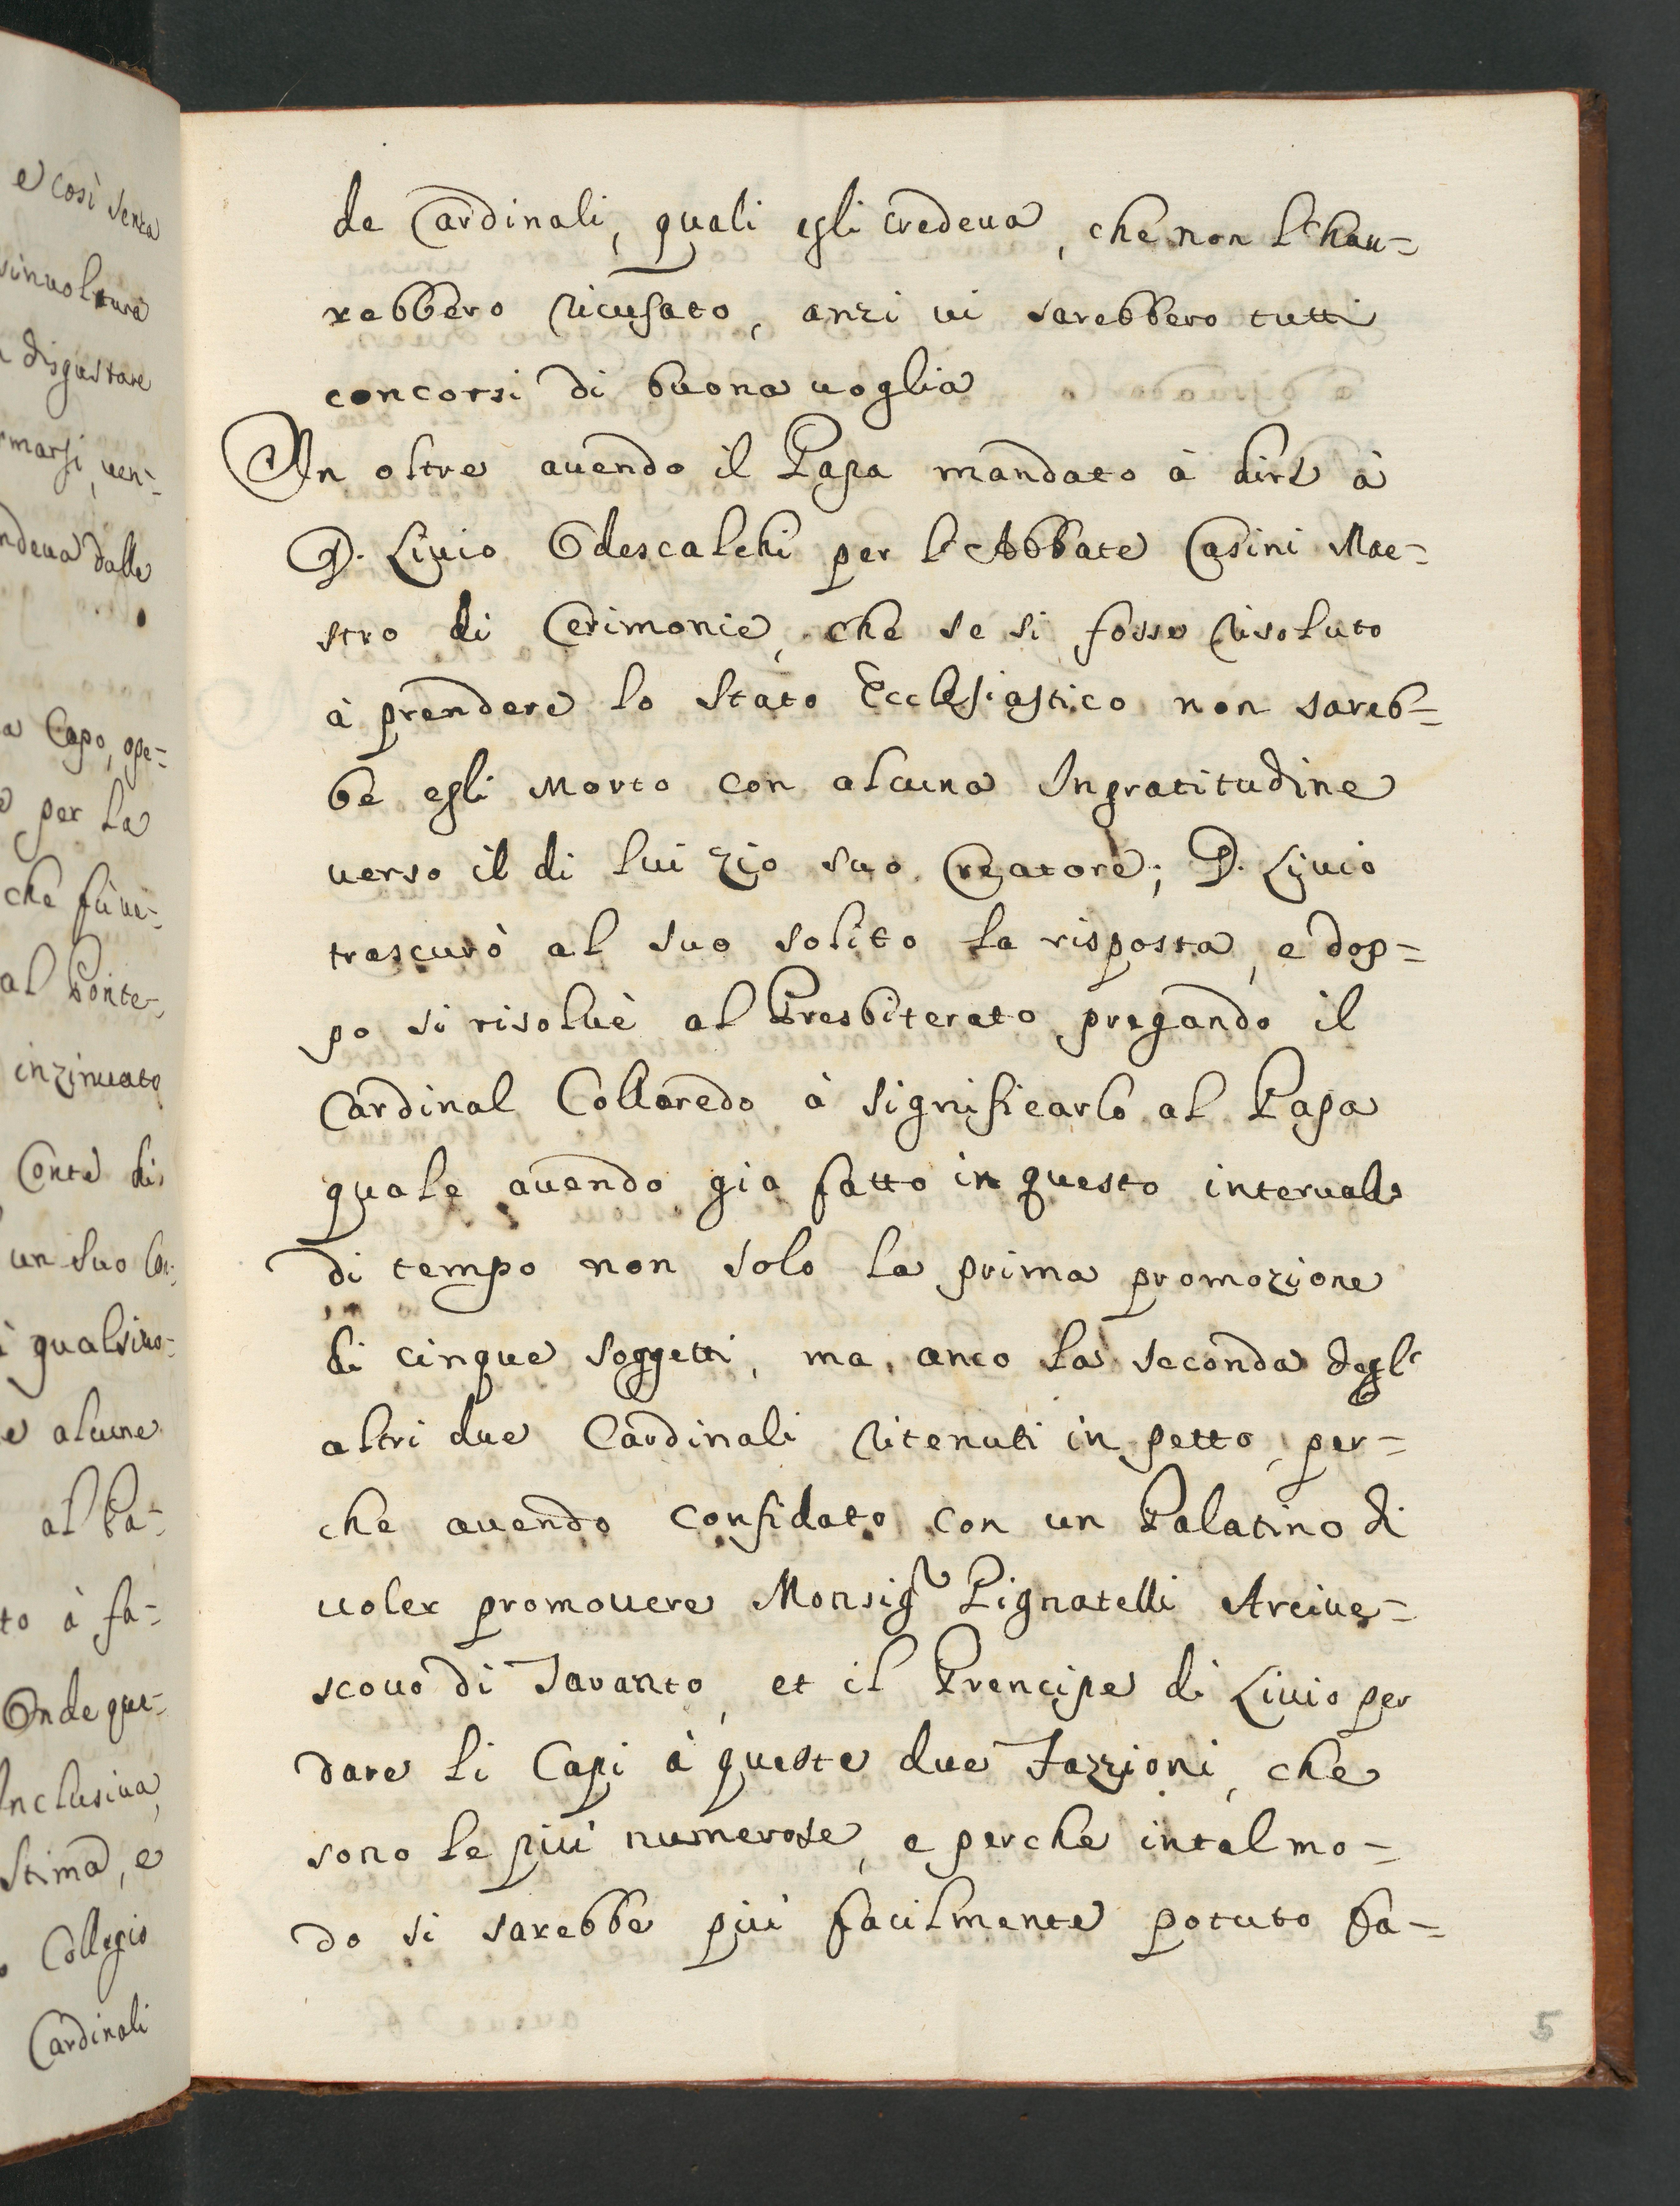 e così senza
sinvoltura
disgustare
rmarsi, ven-
ndeua dalle
a Capo, ope-
per la
che fù ne-
al Ponte-
inzinuato
Conte di
un suo Co-
i qualsiuo-
e alcune
al Pa-
to à fa-
Onde que-
Inclusiua,
stima, e
Collegio
Cardinali
de Cardinali, quali egli credeua, che non l'hau-
rebbero ricusato, anzi ui sarebbero tutti
concorsi di buona uoglia
In oltre auendo il Papa mandato à dire à
D. Liuio Odescalchi per l'Abbate Casini Mae-
stro di Cerimonie, che se si fosse risoluto
à prendere lo Stato Ecclesiastico non sareb-
be egli Morto con alcuna Ingratitudine
uerso il di lui zio suo Creatore; D. Liuio
trascurò al suo solito la risposta, e dop-
po si risoluè al Presbiterato pregando il
Cardinal Colloredo à significarlo al Papa
quale auendo gia fatto in questo interuallo
di tempo non solo la prima promozione
di cinque soggetti, ma anco la seconda degl'
altri due Cardinali ritenuti in petto, per-
che auendo confidato con un Palatino di
uoler promouere Monsigr Pignatelli Arciue-
scouo di Taranto, et il Prencipe di Liuio per
dare li Capi à queste due Fazzioni, che
sono le più numerose, e perche in tal mo-
do si sarebbe più facilmente potuto fa-
5